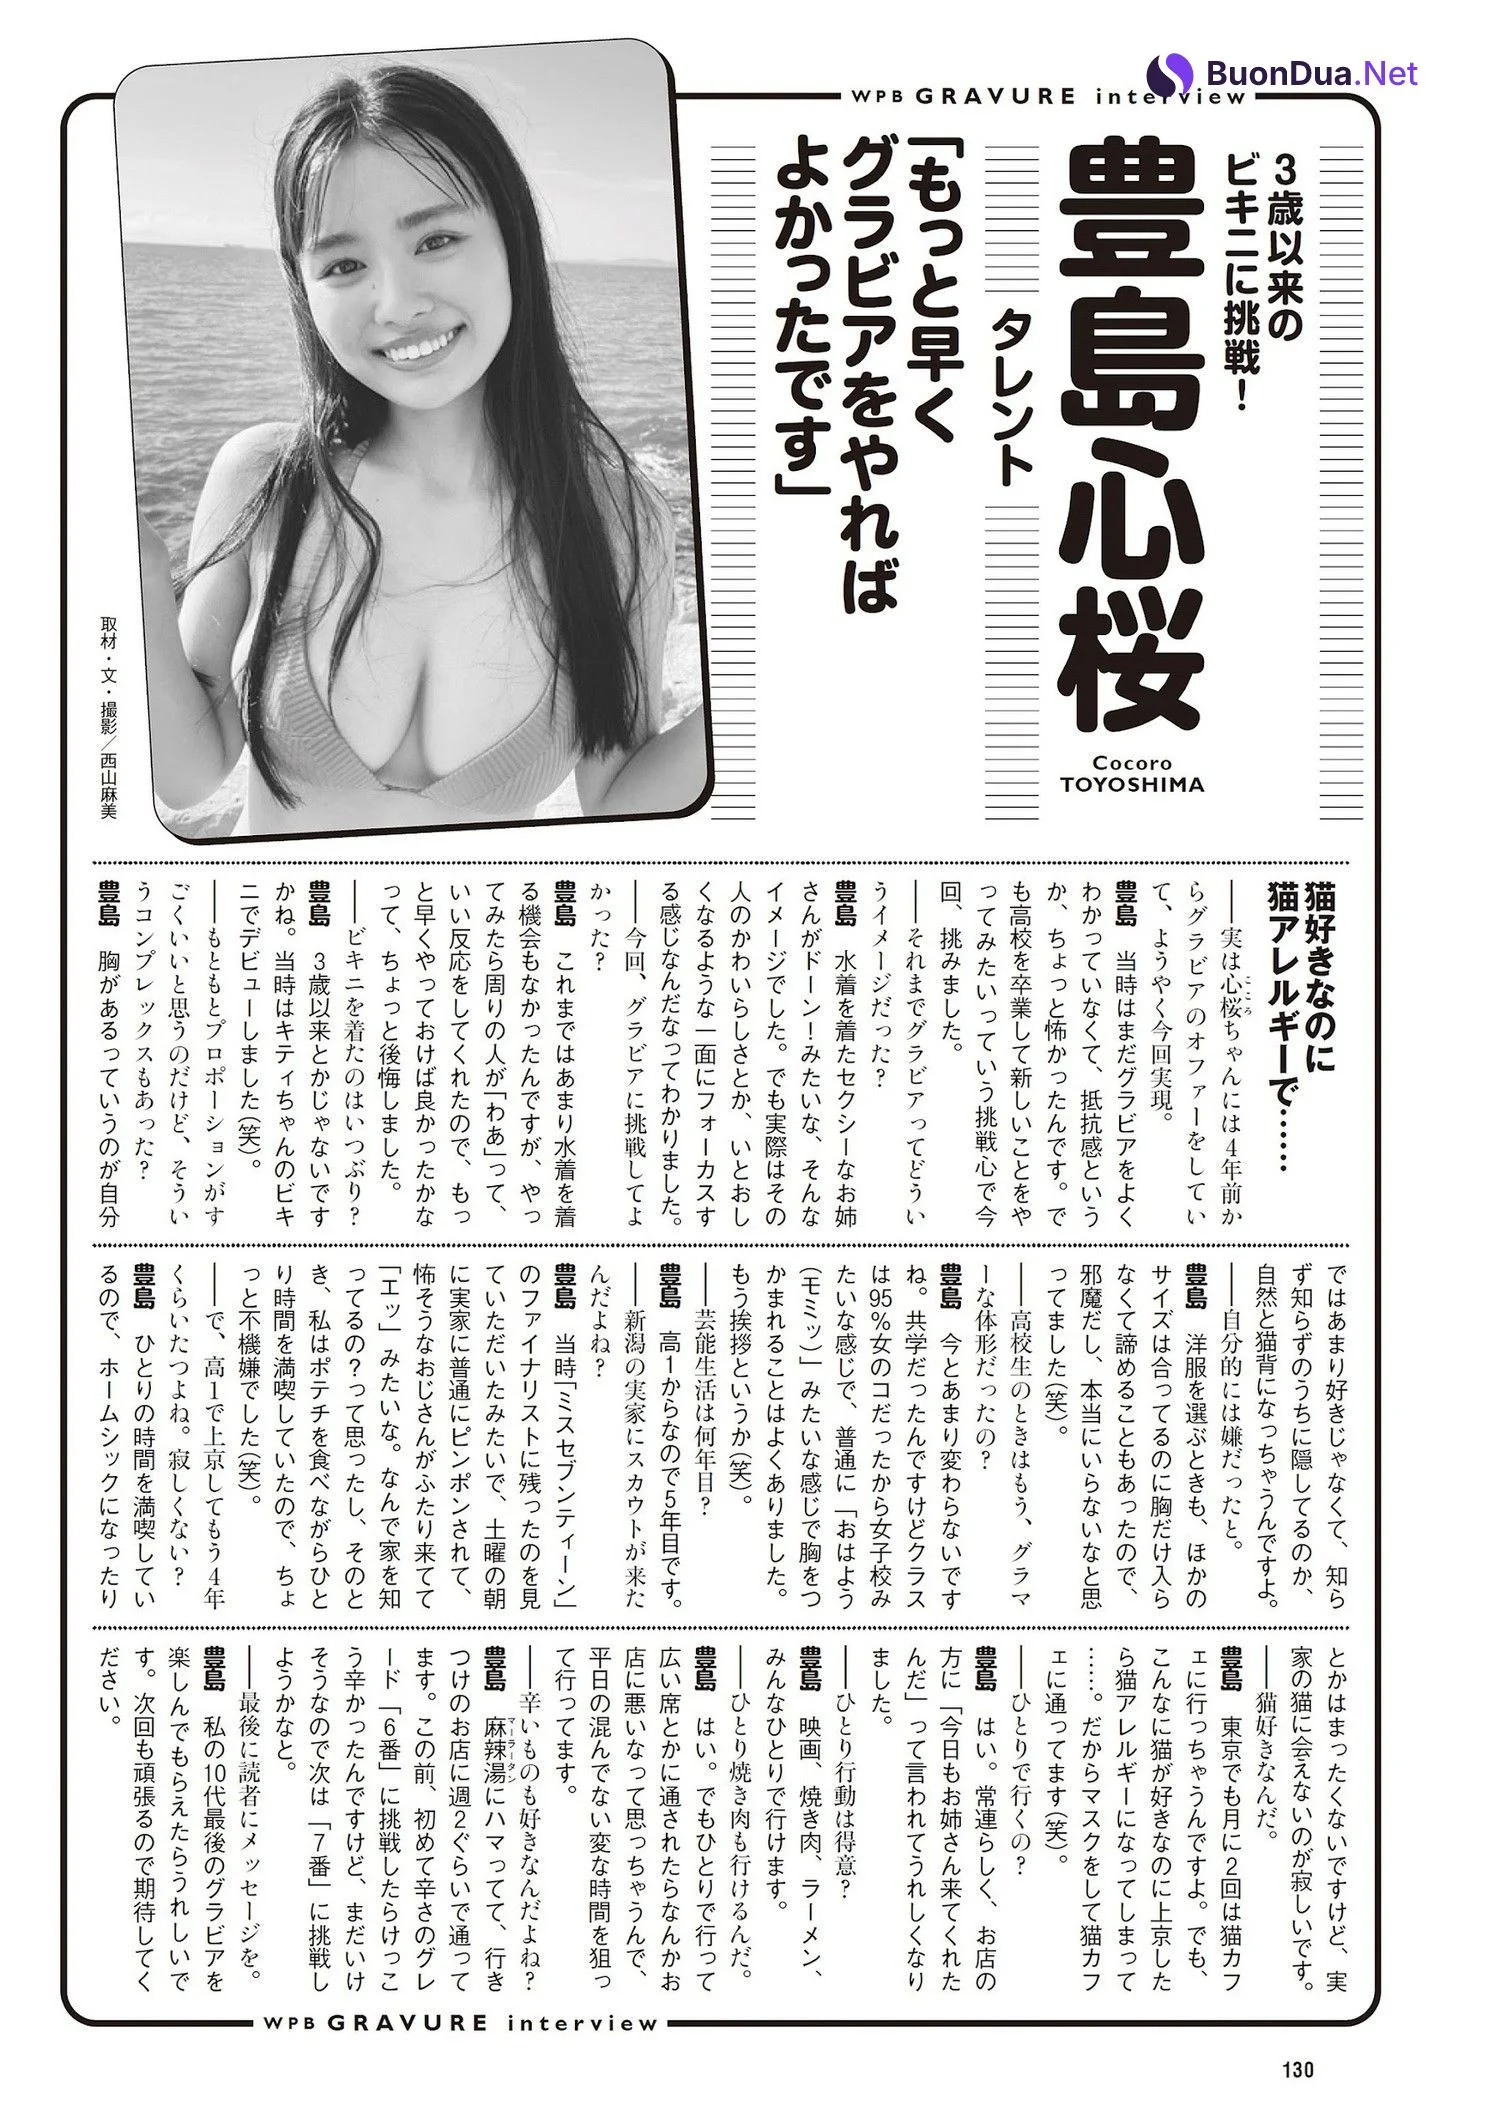 BuonDua.Net
WPB GRAVURE interview
3歳以来の
ビキニに挑戦!
豊島心桜
Cocoro
TOYOSHIMA
タレント
「もっと早く
グラビアをやれば
よかったです」
取材・文・撮影/西山麻美
猫好きなのに
猫アレルギーで……
――実は心桜ちゃんには4年前か
こころ
らグラビアのオファーをしてい
て、ようやく今回実現。
豊島 当時はまだグラビアをよく
わかっていなくて、抵抗感という
か、ちょっと怖かったんです。で
も高校を卒業して新しいことをや
ってみたいっていう挑戦心で今
回、挑みました。
――それまでグラビアってどうい
うイメージだった?
豊島 水着を着たセクシーなお姉
さんがドーン!みたいな、そんな
イメージでした。でも実際はその
人のかわいらしさとか、いとおし
くなるような一面にフォーカスす
る感じなんだなってわかりました。
――今回、グラビアに挑戦してよ
かった?
豊島 これまではあまり水着を着
る機会もなかったんですが、やっ
てみたら周りの人が「わあ」って、
いい反応をしてくれたので、もっ
と早くやっておけば良かったかな
って、ちょっと後悔しました。
――ビキニを着たのはいつぶり?
豊島 3歳以来とかじゃないです
かね。当時はキティちゃんのビキ
ニでデビューしました(笑)。
――もともとプロポーションがす
ごくいいと思うのだけど、そうい
うコンプレックスもあった?
豊島 胸があるっていうのが自分
ではあまり好きじゃなくて、知ら
ず知らずのうちに隠してるのか、
自然と猫背になっちゃうんですよ。
――自分的には嫌だったと。
豊島 洋服を選ぶときも、ほかの
サイズは合ってるのに胸だけ入ら
なくて諦めることもあったので、
邪魔だし、本当にいらないなと思
ってました(笑)。
――高校生のときはもう、グラマ
ーな体形だったの?
豊島 今とあまり変わらないです
ね。共学だったんですけどクラス
は95%女のコだったから女子校み
たいな感じで、普通に「おはよう
(モミッ)」みたいな感じで胸をつ
かまれることはよくありました。
もう挨拶というか(笑)。
――芸能生活は何年目?
豊島 高1からなので5年目です。
――新潟の実家にスカウトが来た
んだよね?
豊島 当時「ミスセブンティーン」
のファイナリストに残ったのを見
ていただいたみたいで、土曜の朝
に実家に普通にピンポンされて、
怖そうなおじさんがふたり来てて
「エッ」みたいな。なんで家を知
ってるの?って思ったし、そのと
き、私はポテチを食べながらひと
り時間を満喫していたので、ちょ
っと不機嫌でした(笑)。
――で、高1で上京してもう4年
くらいたつよね。寂しくない?
豊島 ひとりの時間を満喫してい
るので、ホームシックになったり
とかはまったくないですけど、実
家の猫に会えないのが寂しいです。
――猫好きなんだ。
豊島 東京でも月に2回は猫カフ
ェに行っちゃうんですよ。でも、
こんなに猫が好きなのに上京した
ら猫アレルギーになってしまって
……。だからマスクをして猫カフ
ェに通ってます(笑)。
――ひとりで行くの?
豊島 はい。常連らしく、お店の
方に「今日もお姉さん来てくれた
んだ」って言われてうれしくなり
ました。
――ひとり行動は得意?
豊島 映画、焼き肉、ラーメン、
みんなひとりで行けます。
――ひとり焼き肉も行けるんだ。
豊島 はい。でもひとりで行って
広い席とかに通されたらなんかお
店に悪いなって思っちゃうんで、
平日の混んでない変な時間を狙っ
て行ってます。
――辛いものも好きなんだよね?
豊島 麻辣湯にハマってて、行き
マーラータン
つけのお店に週2ぐらいで通って
ます。この前、初めて辛さのグレ
ード「6番」に挑戦したらけっこ
う辛かったんですけど、まだいけ
そうなので次は「7番」に挑戦し
ようかなと。
――最後に読者にメッセージを。
豊島 私の10代最後のグラビアを
楽しんでもらえたらうれしいで
す。次回も頑張るので期待してく
ださい。
WPB GRAVURE interview
130